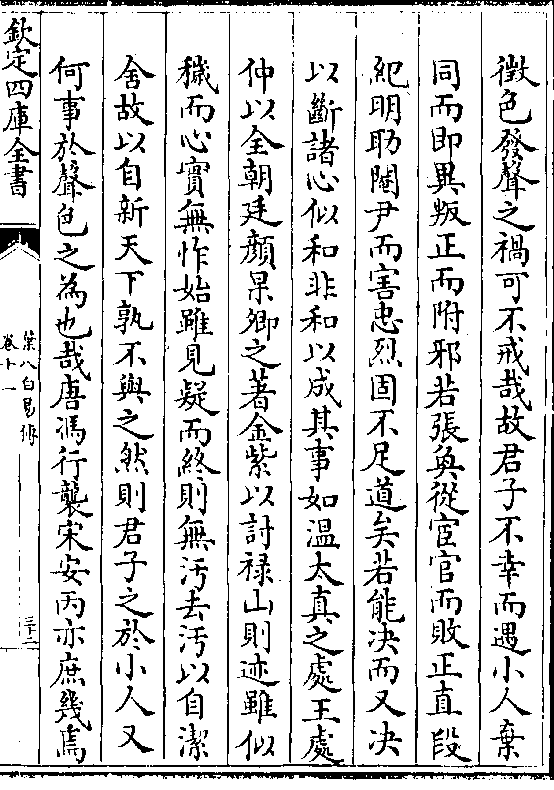 徵色發聲之禍可不戒哉故君子不幸而遇小人棄
同而即異叛正而附邪若張奐從宦官而敗正直段
紀明助閹尹而害忠烈固不足道矣若能决而又决
以斷諸心似和非和以成其事如温太真之處王處
仲以全朝廷顔杲卿之著金紫以討禄山則迹雖似
穢而心實無怍始雖見疑而終則無汚去汚以自潔
舍故以自新天下孰不與之然則君子之於小人又
何事於聲色之為也哉唐馮行襲宋安丙亦庶幾焉
欽定四庫全書
葉八白易傳
卷十一
三十二